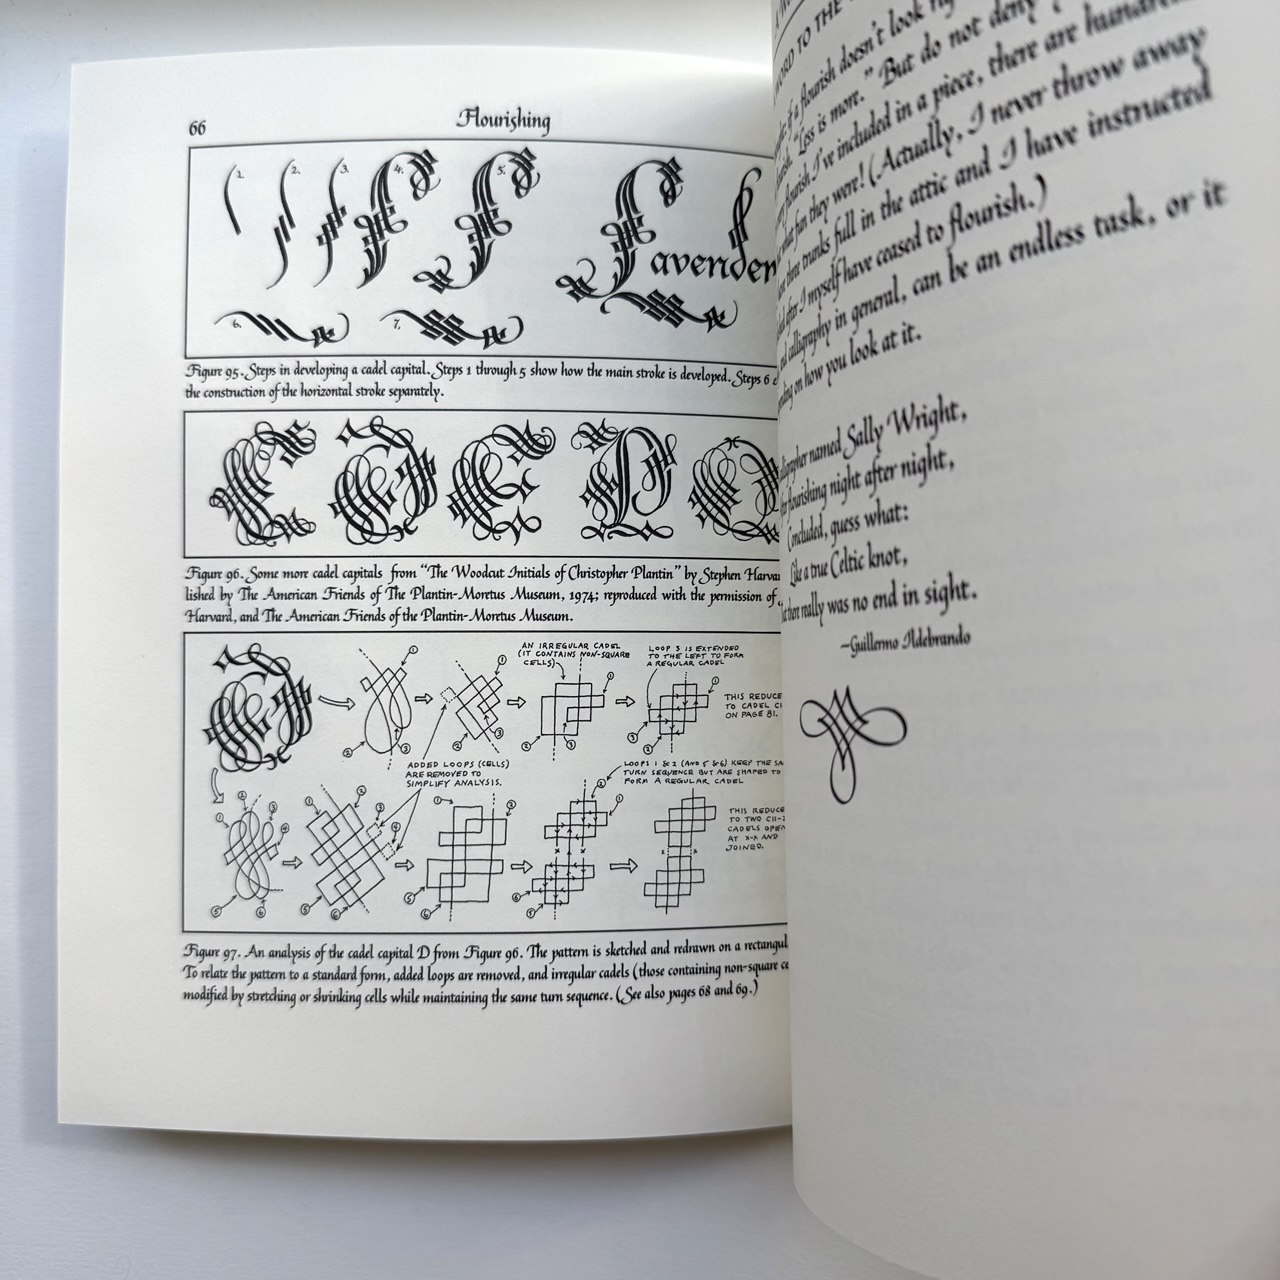 66
Flourishing
1.
2.
3.
4.
5.
Lavender
6.
7.
Figure 95. Steps in developing a cadel capital. Steps 1 through 5 show how the main stroke is developed. Steps 6
the construction of the horizontal stroke separately.
Figure 96. Some more cadel capitals from “The Woodcut Initials of Christopher Plantin” by Stephen Harva
lished by The American Friends of The Plantin-Moretus Museum, 1974; reproduced with the permission of
Harvard, and The American Friends of the Plantin-Moretus Museum.
AN IRREGULAR CADEL
(IT CONTAINS NON-SQUARE
CELLS)
LOOP 3 IS EXTENDED
TO THE LEFT TO FORM
A REGULAR CADEL
THIS REDUCE
TO CADEL
ON PAGE 81.
1
2
3
1
2
3
1
2
3
1
2
3
ADDED LOOPS (CELLS)
ARE REMOVED TO
SIMPLIFY ANALYSIS.
LOOPS 1 & 2 (AND 5 & 6) KEEP THE SA
TURN SEQUENCE BUT ARE SHAPED TO
FORM A REGULAR CADEL
THIS REDUCE
TO TWO
CADELS OPEN
AT X-X AND
JOINED.
1
2
3
4
5
6
1
2
3
4
5
6
1
2
5
6
1
2
x x
5
6
x x
Figure 97. An analysis of the cadel capital D from Figure 96. The pattern is sketched and redrawn on a rectangul
To relate the pattern to a standard form, added loops are removed, and irregular cadels (those containing non-square ce
modified by stretching or shrinking cells while maintaining the same turn sequence. (See also pages 68 and 69.)
WORD TO THE
if a flourish doesn't look
“Less is more.” But do not deny
flourish I've included in a piece, there are hundred
what fun they were! (Actually, I never throw away
three trunks full in the attic and I have instructed
after I myself have ceased to flourish.)
and calligraphy in general, can be an endless task, or it
on how you look at it.
named Sally Wright,
flourishing night after night,
Concluded, guess what:
Like a true Celtic knot,
there really was no end in sight.
—Guillermo Ildebrando